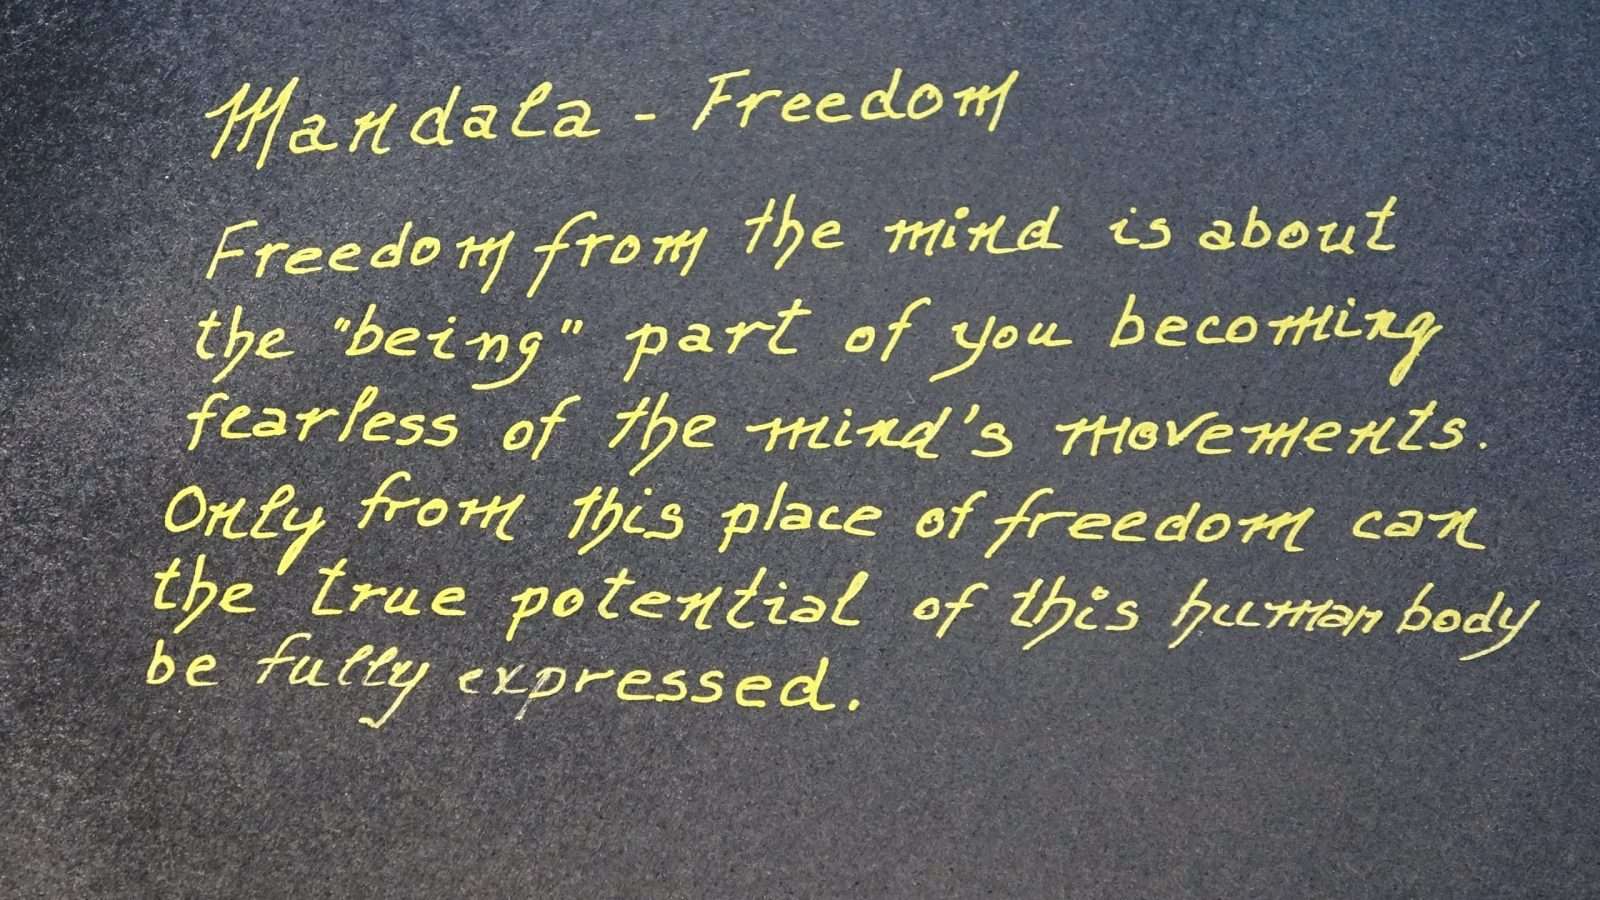 Mandala - Freedom
Freedom from the mind is about
the "being" part of you becoming
fearless of the mind's movements.
Only from this place of freedom can
the true potential of this human body
be fully expressed.